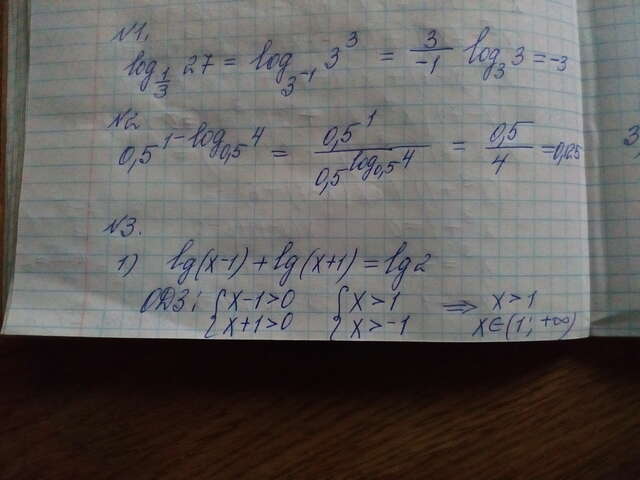 N1.
log_{1/3} 27 = log_{3^{-1}} 3^3 = 3/-1 log_3 3 = -3
N2
0,5^{1-log_{0,5} 4} = 0,5^1/0,5^{log_{0,5} 4} = 0,5/4 = 0,125
3,
N3.
1) lg(x-1) + lg(x+1) = lg2
ОДЗ: { x-1>0 { x>1 ⇒ x>1
x+1>0 x>-1 x∈(1; +∞)